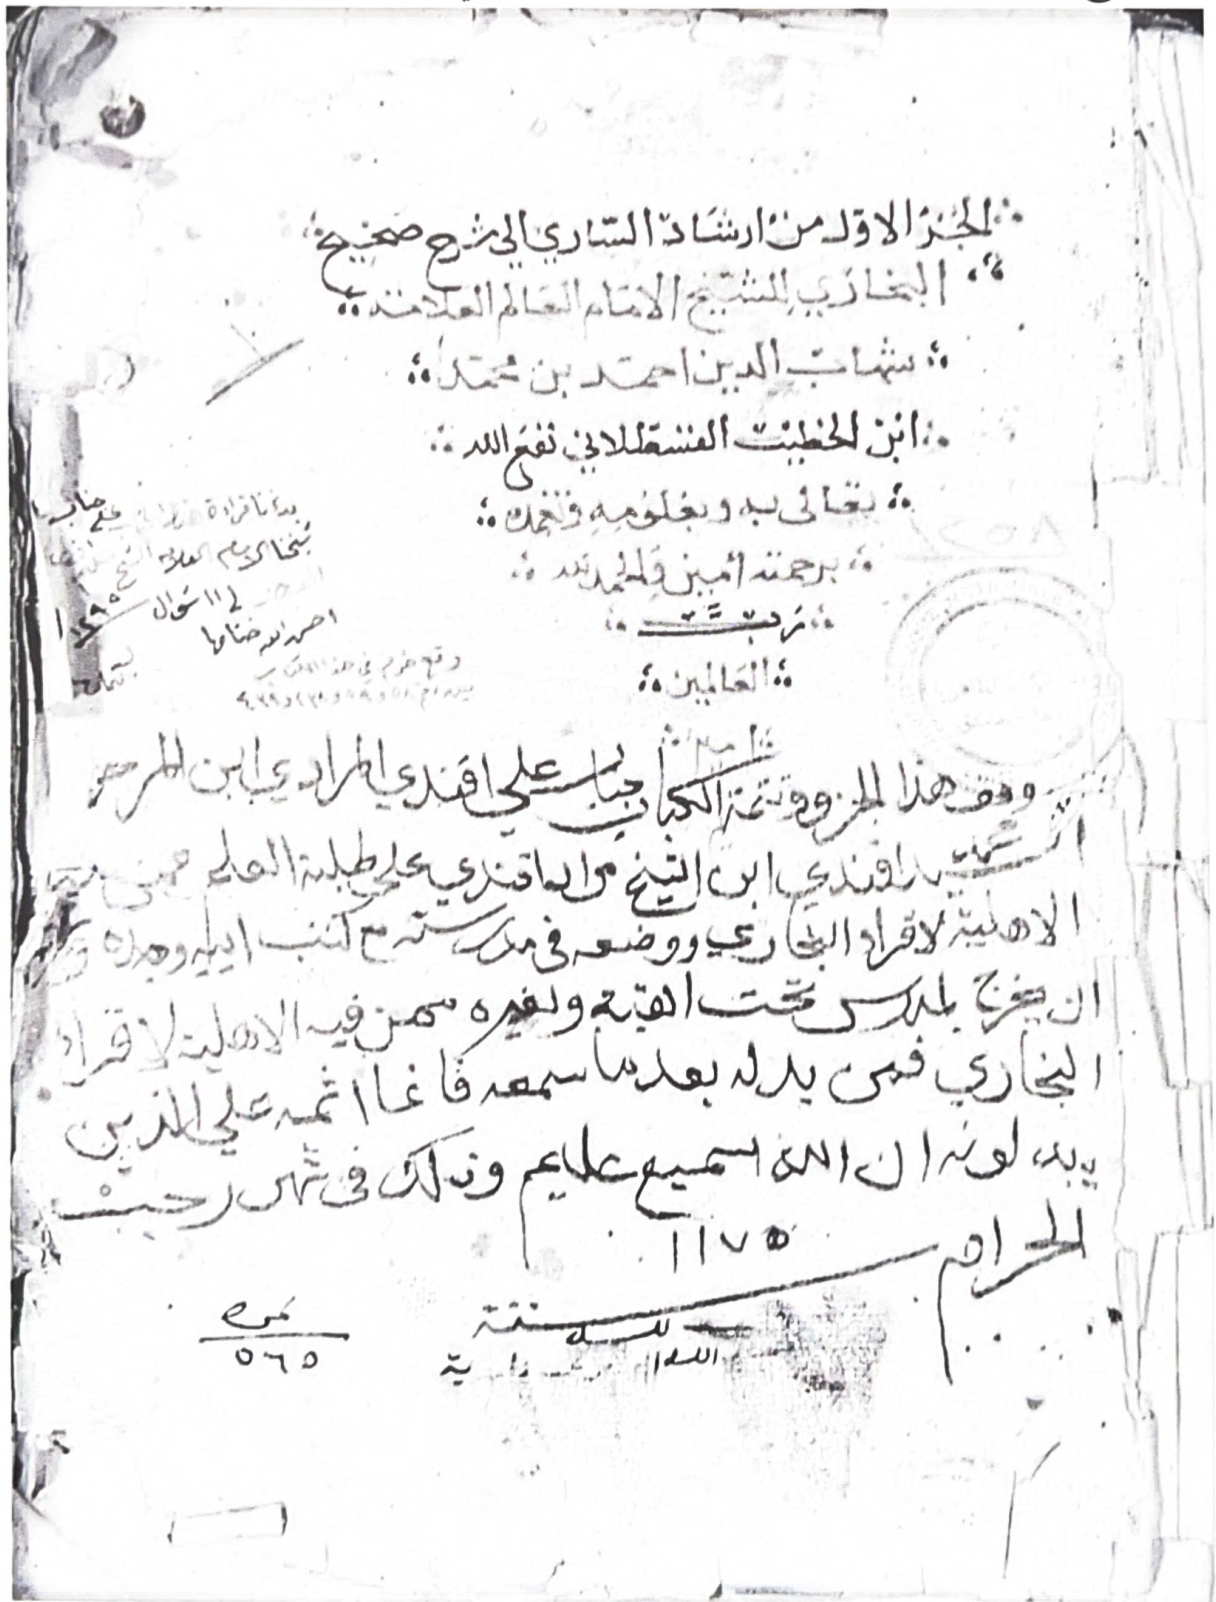 الجزء الاول من ارشاد الساري الى شرح صحيح
البخاري للشيخ الامام العالم العلامة
شهاب الدين احمد بن محمد
ابن الخطيب القسطلاني نفع الله
تعالى به وبعلومه وتغمده
برحمته امين والحمد لله
رب
العالمين
امين
بدانا قراءة على جناب
شيخنا الامام العلامة الشيخ
في ١١ شوال
احسن الله ختامها
وقع خرم في هذا الكتاب
وقف هذا الجزو وتتمة الكتاب جناب علي افندي المرادي ابن المرحو
افندي ابن الشيخ مراد افندي على طلبة العلم ممن
الاهلية لاقراء البخاري ووضعه في مدرسته مع كتب ابيه وجده
ان يخرج لمدرس تحت القبة ولغيره ممن فيه الاهلية لاقراء
البخاري فمن بدله بعد ما سمعه فانما اثمه علي الذين
يبدلونه ان الله سميع عليم وذلك في شهر رجب
الحرام
١١٧٥
سنة
نمره
٥٦٥